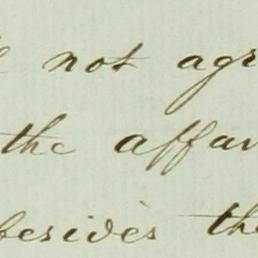 not agr
the affar
besides the